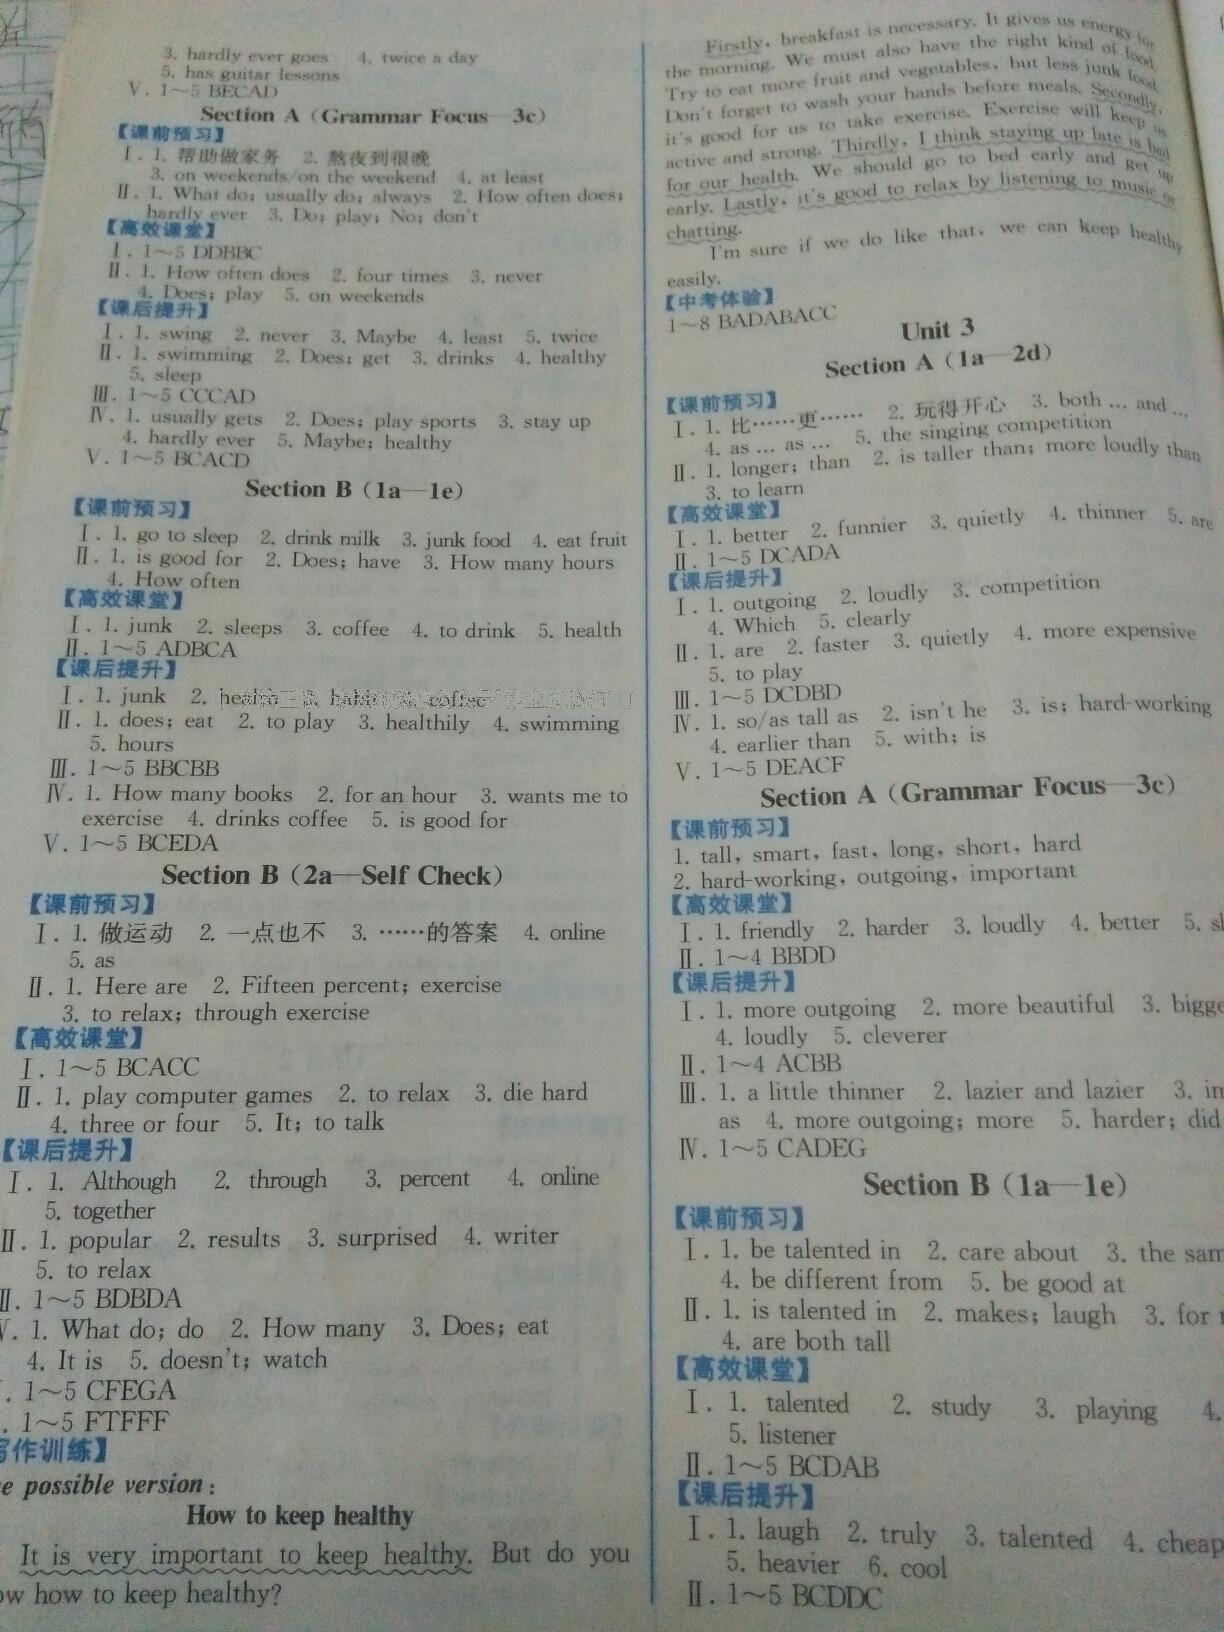 3. hardly ever goes 4. twice a day
5. has guitar lessons
Ⅴ. 1～5 BECAD
Section A（Grammar Focus—3c）
【课前预习】
Ⅰ. 1. 帮助做家务 2. 熬夜到很晚
3. on weekends/on the weekend 4. at least
Ⅱ. 1. What do; usually do; always 2. How often does;
hardly ever 3. Do; play; No; don't
【高效课堂】
Ⅰ. 1～5 DDBBC
Ⅱ. 1. How often does 2. four times 3. never
4. Does; play 5. on weekends
【课后提升】
Ⅰ. 1. swing 2. never 3. Maybe 4. least 5. twice
Ⅱ. 1. swimming 2. Does; get 3. drinks 4. healthy
5. sleep
Ⅲ. 1～5 CCCAD
Ⅳ. 1. usually gets 2. Does; play sports 3. stay up
4. hardly ever 5. Maybe; healthy
Ⅴ. 1～5 BCACD
Section B（1a—1e）
【课前预习】
Ⅰ. 1. go to sleep 2. drink milk 3. junk food 4. eat fruit
Ⅱ. 1. is good for 2. Does; have 3. How many hours
4. How often
【高效课堂】
Ⅰ. 1. junk 2. sleeps 3. coffee 4. to drink 5. health
Ⅱ. 1～5 ADBCA
【课后提升】
Ⅰ. 1. junk 2. health 3. coffee
Ⅱ. 1. does; eat 2. to play 3. healthily 4. swimming
5. hours
Ⅲ. 1～5 BBCBB
Ⅳ. 1. How many books 2. for an hour 3. wants me to
exercise 4. drinks coffee 5. is good for
Ⅴ. 1～5 BCEDA
Section B（2a—Self Check）
【课前预习】
Ⅰ. 1. 做运动 2. 一点也不 3. ……的答案 4. online
5. as
Ⅱ. 1. Here are 2. Fifteen percent; exercise
3. to relax; through exercise
【高效课堂】
Ⅰ. 1～5 BCACC
Ⅱ. 1. play computer games 2. to relax 3. die hard
4. three or four 5. It; to talk
【课后提升】
Ⅰ. 1. Although 2. through 3. percent 4. online
5. together
Ⅱ. 1. popular 2. results 3. surprised 4. writer
5. to relax
Ⅱ. 1～5 BDBDA
Ⅴ. 1. What do; do 2. How many 3. Does; eat
4. It is 5. doesn't; watch
. 1～5 CFEGA
. 1～5 FTFFF
写作训练】
e possible version:
How to keep healthy
It is very important to keep healthy. But do you
ow how to keep healthy?
Firstly, breakfast is necessary. It gives us energy for
the morning. We must also have the right kind of food.
Try to eat more fruit and vegetables, but less junk food.
Don't forget to wash your hands before meals. Secondly,
it's good for us to take exercise. Exercise will keep us
active and strong. Thirdly, I think staying up late is bad
for our health. We should go to bed early and get up
early. Lastly, it's good to relax by listening to music or
chatting.
I'm sure if we do like that, we can keep healthy
easily.
【中考体验】
1～8 BADABACC
Unit 3
Section A（1a—2d）
【课前预习】
Ⅰ. 1. 比……更…… 2. 玩得开心 3. both ... and ...
4. as ... as ... 5. the singing competition
Ⅱ. 1. longer; than 2. is taller than; more loudly than
3. to learn
【高效课堂】
Ⅰ. 1. better 2. funnier 3. quietly 4. thinner 5. are
Ⅱ. 1～5 DCADA
【课后提升】
Ⅰ. 1. outgoing 2. loudly 3. competition
4. Which 5. clearly
Ⅱ. 1. are 2. faster 3. quietly 4. more expensive
5. to play
Ⅲ. 1～5 DCDBD
Ⅳ. 1. so/as tall as 2. isn't he 3. is; hard-working
4. earlier than 5. with; is
Ⅴ. 1～5 DEACF
Section A（Grammar Focus—3c）
【课前预习】
1. tall, smart, fast, long, short, hard
2. hard-working, outgoing, important
【高效课堂】
Ⅰ. 1. friendly 2. harder 3. loudly 4. better 5.
Ⅱ. 1～4 BBDD
【课后提升】
Ⅰ. 1. more outgoing 2. more beautiful 3. bigge
4. loudly 5. cleverer
Ⅱ. 1～4 ACBB
Ⅲ. 1. a little thinner 2. lazier and lazier 3.
as 4. more outgoing; more 5. harder; did
Ⅳ. 1～5 CADEG
Section B（1a—1e）
【课前预习】
Ⅰ. 1. be talented in 2. care about 3. the sam
4. be different from 5. be good at
Ⅱ. 1. is talented in 2. makes; laugh 3. for
4. are both tall
【高效课堂】
Ⅰ. 1. talented 2. study 3. playing 4.
5. listener
Ⅱ. 1～5 BCDAB
【课后提升】
Ⅰ. 1. laugh 2. truly 3. talented 4. cheap
5. heavier 6. cool
Ⅱ. 1～5 BCDDC